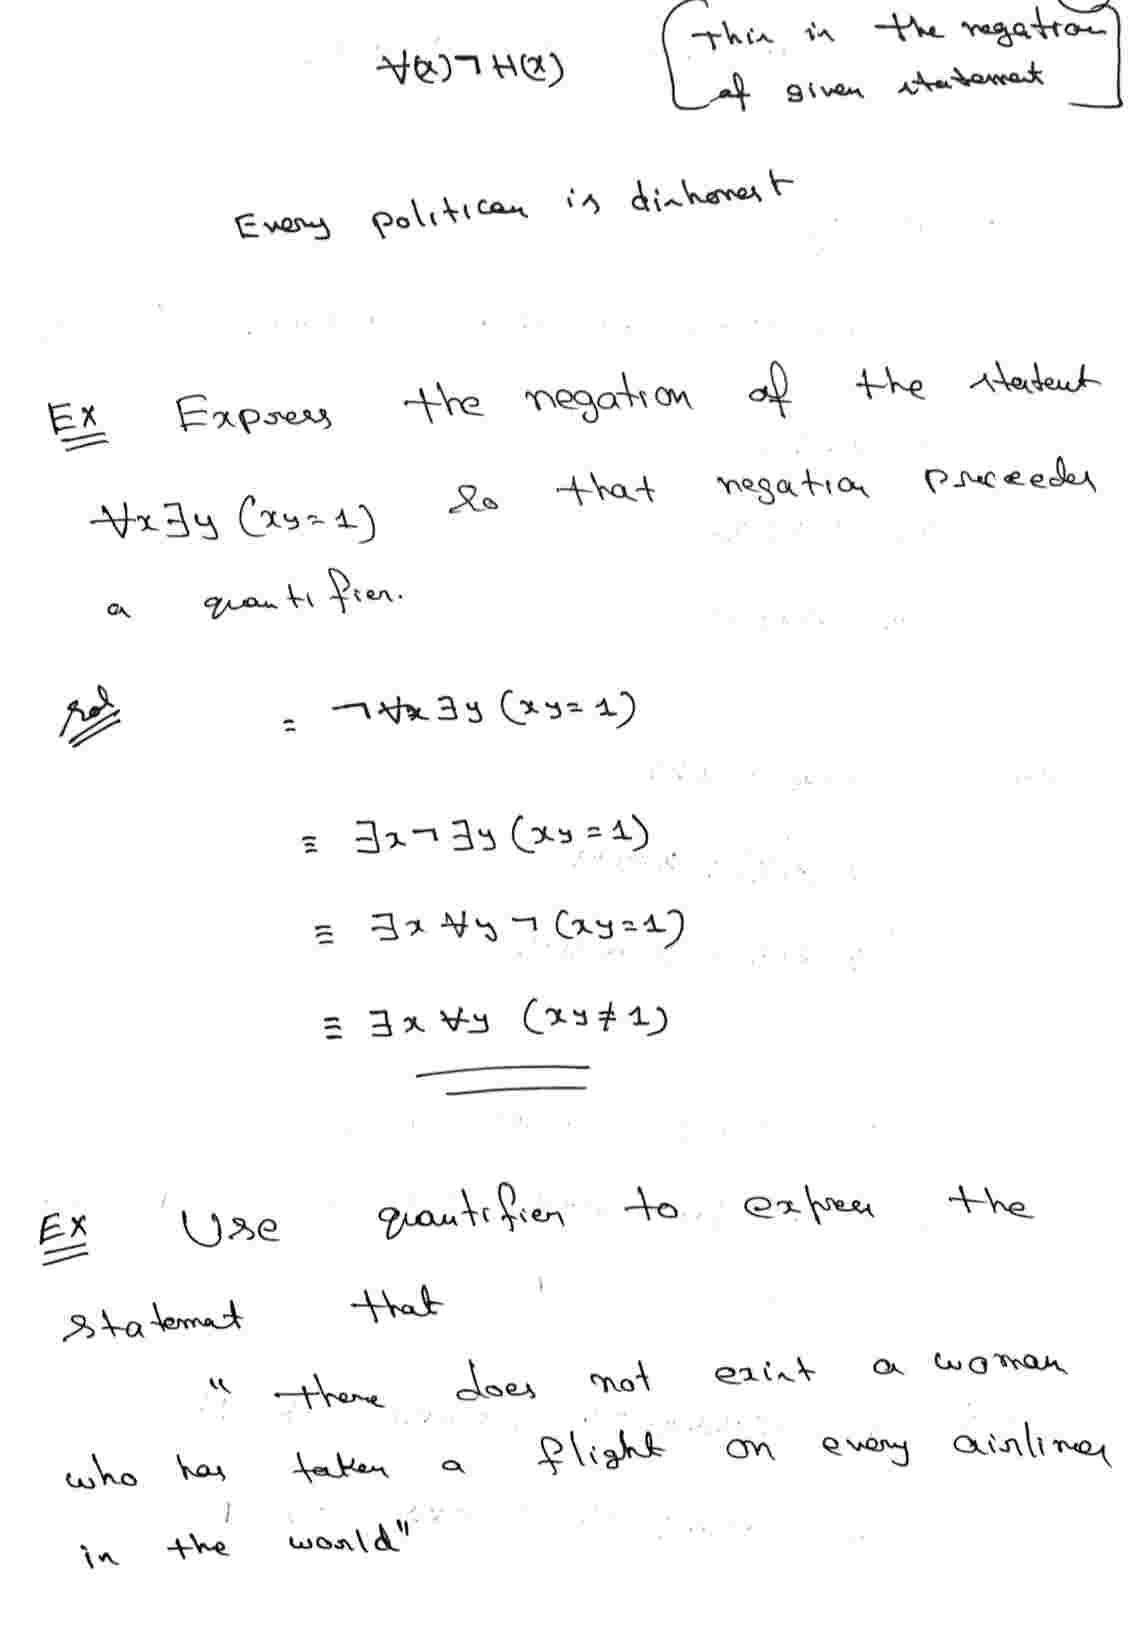 ∀(x)¬H(x)
[This is the negation
of given statement]
Every politican is dishonest
Ex Express the negation of the statent
∀x∃y (xy=1) so that negation preceedes
a quantifier.
sol = ¬∀x∃y (xy=1)
≡ ∃x¬∃y (xy=1)
≡ ∃x∀y¬(xy=1)
≡ ∃x∀y (xy≠1)
Ex Use quantifier to express the
statemat that
"there does not exist a woman
who has taken a flight on every airlines
in the world"